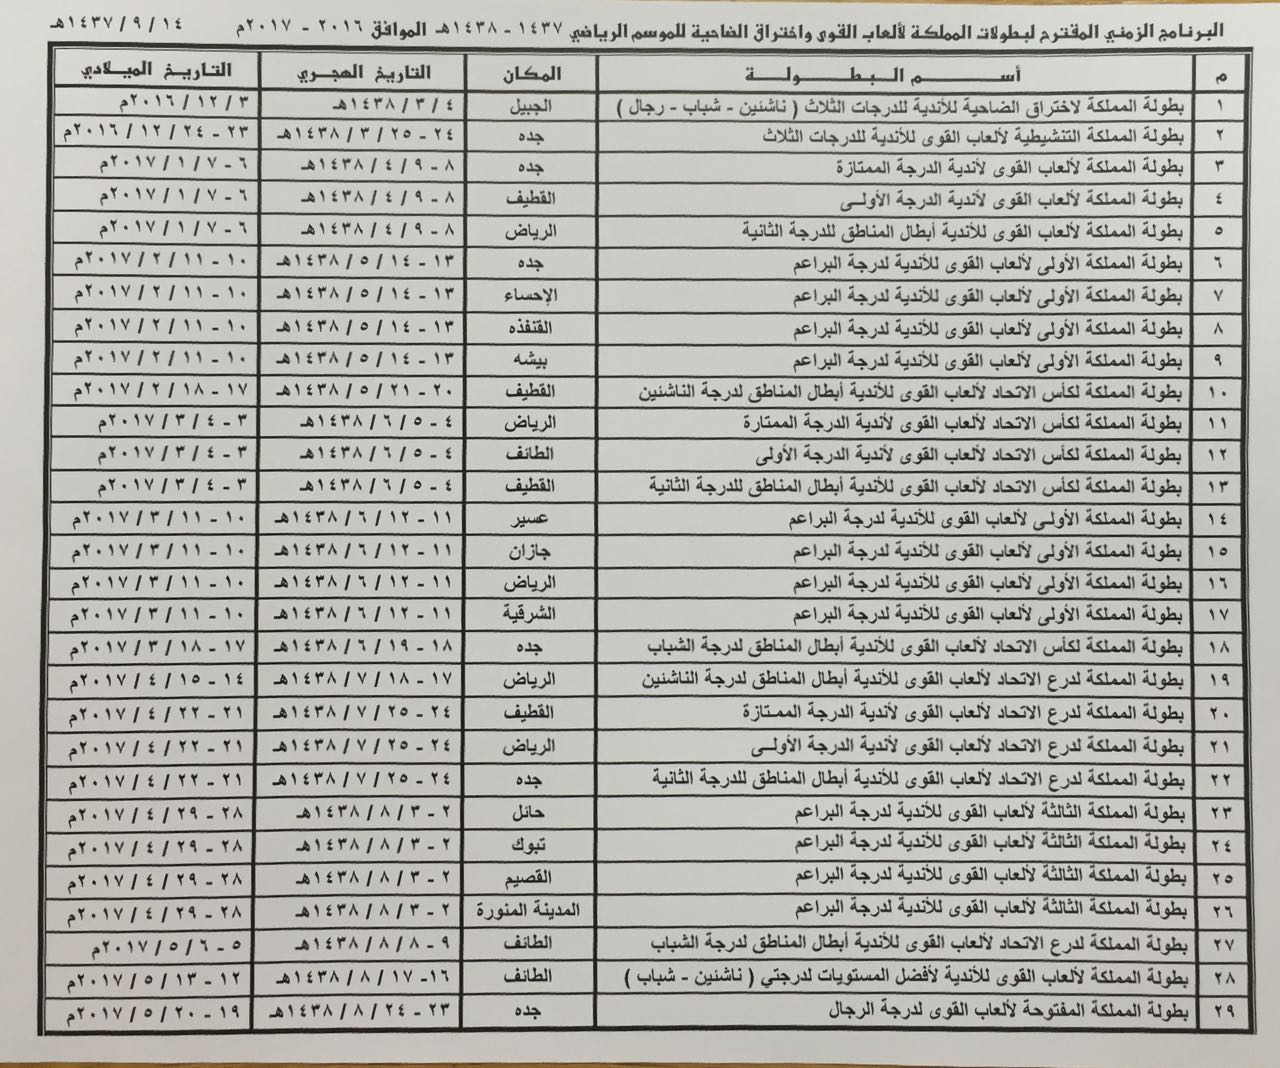 البرنامج الزمني المقترح لبطولات المملكة لألعاب القوى واختراق الضاحية للموسم الرياضي ١٤٣٧ - ١٤٣٨هـ الموافق ٢٠١٦ - ٢٠١٧م ١٤ / ٩ / ١٤٣٧هـ
م أسـم البـطـولـة المكان التاريخ الهجري التاريخ الميلادي
١ بطولة المملكة لاختراق الضاحية للأندية للدرجات الثلاث ( ناشئين - شباب - رجال ) الجبيل ٤ / ٣ / ١٤٣٨هـ ٣ / ١٢ / ٢٠١٦م
٢ بطولة المملكة التنشيطية لألعاب القوى للأندية للدرجات الثلاث جده ٢٤ - ٢٥ / ٣ / ١٤٣٨هـ ٢٣ - ٢٤ / ١٢ / ٢٠١٦م
٣ بطولة المملكة لألعاب القوى لأندية الدرجة الممتازة جده ٨ - ٩ / ٤ / ١٤٣٨هـ ٦ - ٧ / ١ / ٢٠١٧م
٤ بطولة المملكة لألعاب القوى لأندية الدرجة الأولـى القطيف ٨ - ٩ / ٤ / ١٤٣٨هـ ٦ - ٧ / ١ / ٢٠١٧م
٥ بطولة المملكة لألعاب القوى للأندية أبطال المناطق للدرجة الثانية الرياض ٨ - ٩ / ٤ / ١٤٣٨هـ ٦ - ٧ / ١ / ٢٠١٧م
٦ بطولة المملكة الأولى لألعاب القوى للأندية لدرجة البراعم جده ١٣ - ١٤ / ٥ / ١٤٣٨هـ ١٠ - ١١ / ٢ / ٢٠١٧م
٧ بطولة المملكة الأولى لألعاب القوى للأندية لدرجة البراعم الإحساء ١٣ - ١٤ / ٥ / ١٤٣٨هـ ١٠ - ١١ / ٢ / ٢٠١٧م
٨ بطولة المملكة الأولى لألعاب القوى للأندية لدرجة البراعم القنفذه ١٣ - ١٤ / ٥ / ١٤٣٨هـ ١٠ - ١١ / ٢ / ٢٠١٧م
٩ بطولة المملكة الأولى لألعاب القوى للأندية لدرجة البراعم بيشه ١٣ - ١٤ / ٥ / ١٤٣٨هـ ١٠ - ١١ / ٢ / ٢٠١٧م
١٠ بطولة المملكة لكأس الاتحاد لألعاب القوى للأندية أبطال المناطق لدرجة الناشئين القطيف ٢٠ - ٢١ / ٥ / ١٤٣٨هـ ١٧ - ١٨ / ٢ / ٢٠١٧م
١١ بطولة المملكة لكأس الاتحاد لألعاب القوى لأندية الدرجة الممتارة الرياض ٤ - ٥ / ٦ / ١٤٣٨هـ ٣ - ٤ / ٣ / ٢٠١٧م
١٢ بطولة المملكة لكأس الاتحاد لألعاب القوى لأندية الدرجة الأولى الطائف ٤ - ٥ / ٦ / ١٤٣٨هـ ٣ - ٤ / ٣ / ٢٠١٧م
١٣ بطولة المملكة لكأس الاتحاد لألعاب القوى للأندية أبطال المناطق للدرجة الثانية القطيف ٤ - ٥ / ٦ / ١٤٣٨هـ ٣ - ٤ / ٣ / ٢٠١٧م
١٤ بطولة المملكة الأولـى لألعاب القوى للأندية لدرجة البراعم عسير ١١ - ١٢ / ٦ / ١٤٣٨هـ ١٠ - ١١ / ٣ / ٢٠١٧م
١٥ بطولة المملكة الأولى لألعاب القوى للأندية لدرجة البراعم جازان ١١ - ١٢ / ٦ / ١٤٣٨هـ ١٠ - ١١ / ٣ / ٢٠١٧م
١٦ بطولة المملكة الأولى لألعاب القوى للأندية لدرجة البراعم الرياض ١١ - ١٢ / ٦ / ١٤٣٨هـ ١٠ - ١١ / ٣ / ٢٠١٧م
١٧ بطولة المملكة الأولى لألعاب القوى للأندية لدرجة البراعم الشرقية ١١ - ١٢ / ٦ / ١٤٣٨هـ ١٠ - ١١ / ٣ / ٢٠١٧م
١٨ بطولة المملكة لكأس الاتحاد لألعاب القوى للأندية أبطال المناطق لدرجة الشباب جده ١٨ - ١٩ / ٦ / ١٤٣٨هـ ١٧ - ١٨ / ٣ / ٢٠١٧م
١٩ بطولة المملكة لدرع الاتحاد لألعاب القوى للأندية أبطال المناطق لدرجة الناشئين الرياض ١٧ - ١٨ / ٧ / ١٤٣٨هـ ١٤ - ١٥ / ٤ / ٢٠١٧م
٢٠ بطولة المملكة لدرع الاتحاد لألعاب القوى لأندية الدرجة الممـتازة القطيف ٢٤ - ٢٥ / ٧ / ١٤٣٨هـ ٢١ - ٢٢ / ٤ / ٢٠١٧م
٢١ بطولة المملكة لدرع الاتحاد لألعاب القوى لأندية الدرجة الأولـى الرياض ٢٤ - ٢٥ / ٧ / ١٤٣٨هـ ٢١ - ٢٢ / ٤ / ٢٠١٧م
٢٢ بطولة المملكة لدرع الاتحاد لألعاب القوى للأندية أبطال المناطق للدرجة الثانية جده ٢٤ - ٢٥ / ٧ / ١٤٣٨هـ ٢١ - ٢٢ / ٤ / ٢٠١٧م
٢٣ بطولة المملكة الثالثة لألعاب القوى للأندية لدرجة البراعم حائل ٢ - ٣ / ٨ / ١٤٣٨هـ ٢٨ - ٢٩ / ٤ / ٢٠١٧م
٢٤ بطولة المملكة الثالثة لألعاب القوى للأندية لدرجة البراعم تبوك ٢ - ٣ / ٨ / ١٤٣٨هـ ٢٨ - ٢٩ / ٤ / ٢٠١٧م
٢٥ بطولة المملكة الثالثة لألعاب القوى للأندية لدرجة البراعم القصيم ٢ - ٣ / ٨ / ١٤٣٨هـ ٢٨ - ٢٩ / ٤ / ٢٠١٧م
٢٦ بطولة المملكة الثالثة لألعاب القوى للأندية لدرجة البراعم المدينة المنورة ٢ - ٣ / ٨ / ١٤٣٨هـ ٢٨ - ٢٩ / ٤ / ٢٠١٧م
٢٧ بطولة المملكة لدرع الاتحاد لألعاب القوى للأندية أبطال المناطق لدرجة الشباب الطائف ٩ - ٨ / ٨ / ١٤٣٨هـ ٥ - ٦ / ٥ / ٢٠١٧م
٢٨ بطولة المملكة لألعاب القوى للأندية لأفضل المستويات لدرجتي ( ناشئين - شباب ) الطائف ١٦- ١٧ / ٨ / ١٤٣٨هـ ١٢ - ١٣ / ٥ / ٢٠١٧م
٢٩ بطولة المملكة المفتوحة لألعاب القوى لدرجة الرجال جده ٢٣ - ٢٤ / ٨ / ١٤٣٨هـ ١٩ - ٢٠ / ٥ / ٢٠١٧م